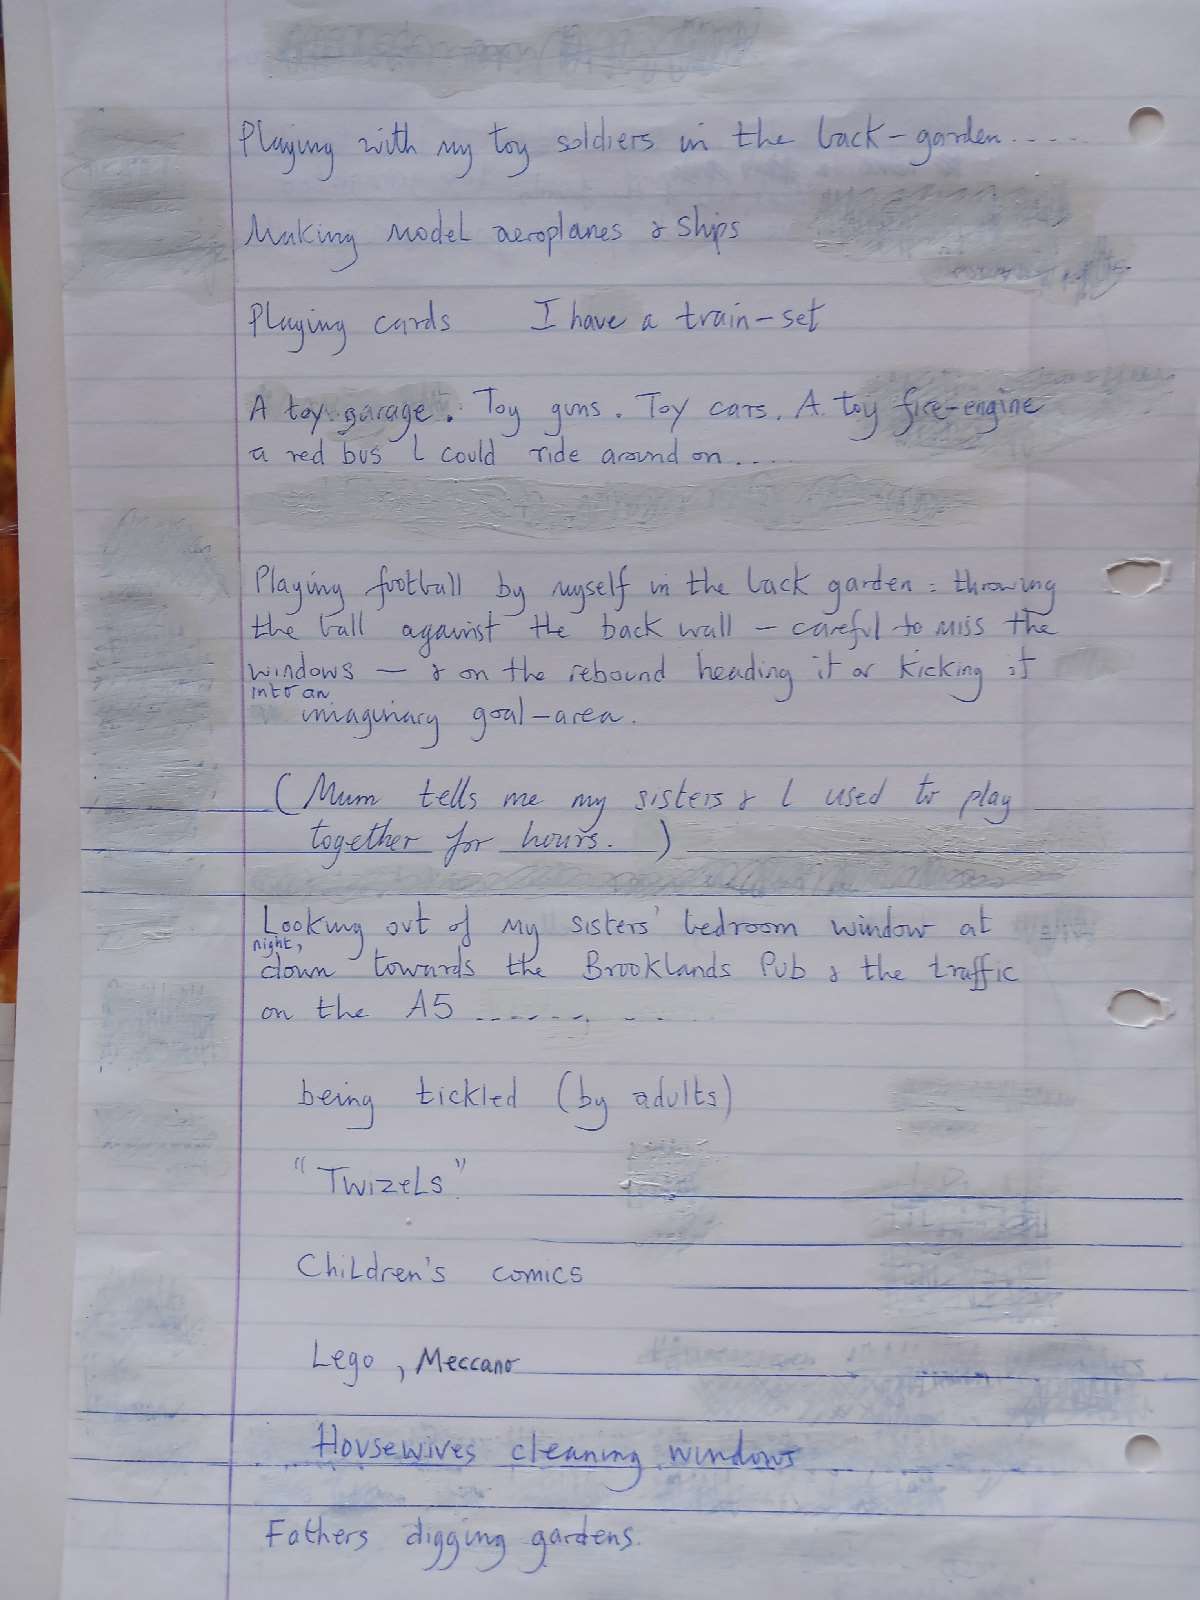 Playing with my toy soldiers in the back-garden.....
Making model aeroplanes & ships
Playing cards I have a train-set
A toy garage. Toy guns. Toy cars. A toy fire-engine
a red bus I could ride around on....
Playing football by myself in the back garden: throwing
the ball against the back wall - careful to miss the
windows - & on the rebound heading it or kicking it
into an
imaginary goal-area.
(Mum tells me my sisters & I used to play
together for hours. )
Looking out of my sisters' bedroom window at
night,
down towards the Brooklands Pub & the traffic
on the A5 .........
being tickled (by adults)
"Twizels"
Children's comics
Lego, Meccano
Housewives cleaning windows
Fathers digging gardens.